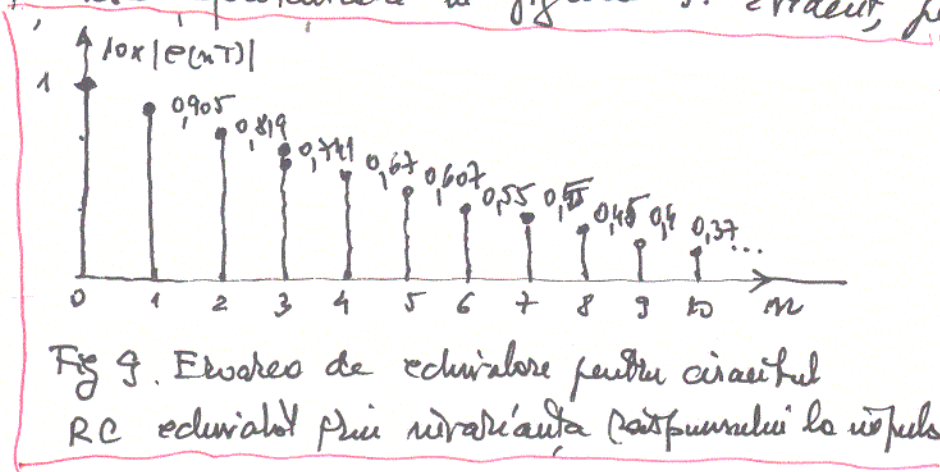 figura 9. Evident,
10x|e(nT)|
1
0,905 0,819 0,741 0,67 0,607 0,55 0,45 0,4 0,37...
0 1 2 3 4 5 6 7 8 9 10 n
Fig 9. Eroarea de echivalare pentru circuitul
RC echivalat prin invarianța răspunsului la impuls